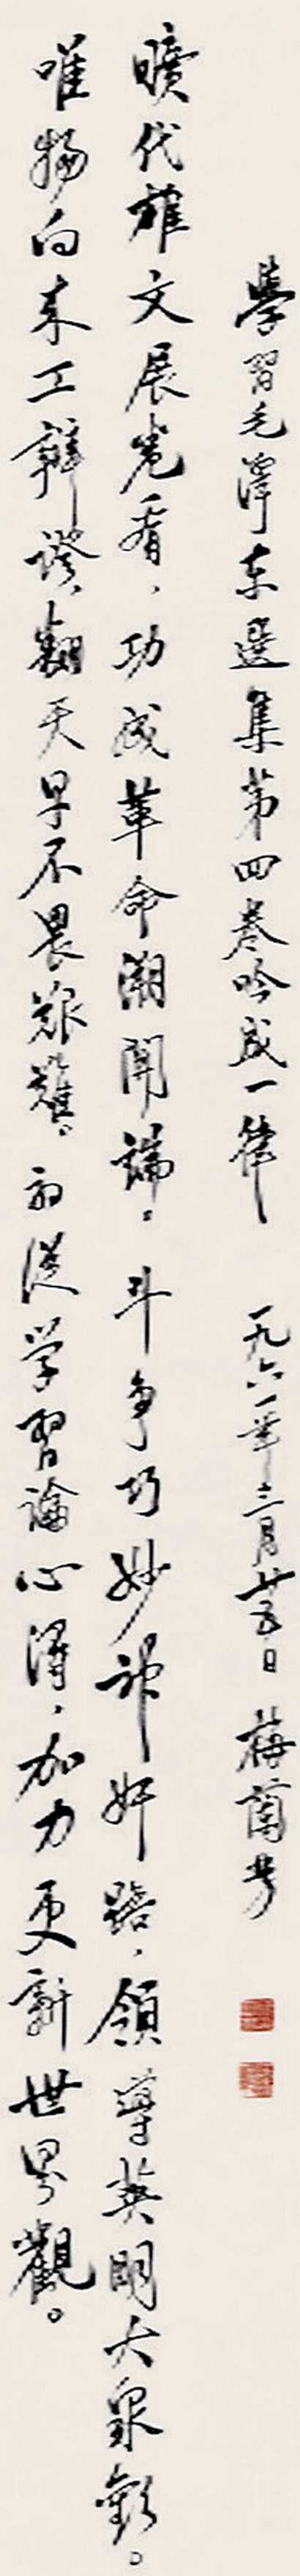 學習毛澤东選集第四卷吟成一律 一九六一年三月廿五日 梅蘭芳
曠代雄文展卷看，功成革命溯開端。斗争巧妙神奸踣，領導英明大衆歡。
唯物向来工辯證，翻天早不畏艱難。初從学習論心得，加力更新世界觀。